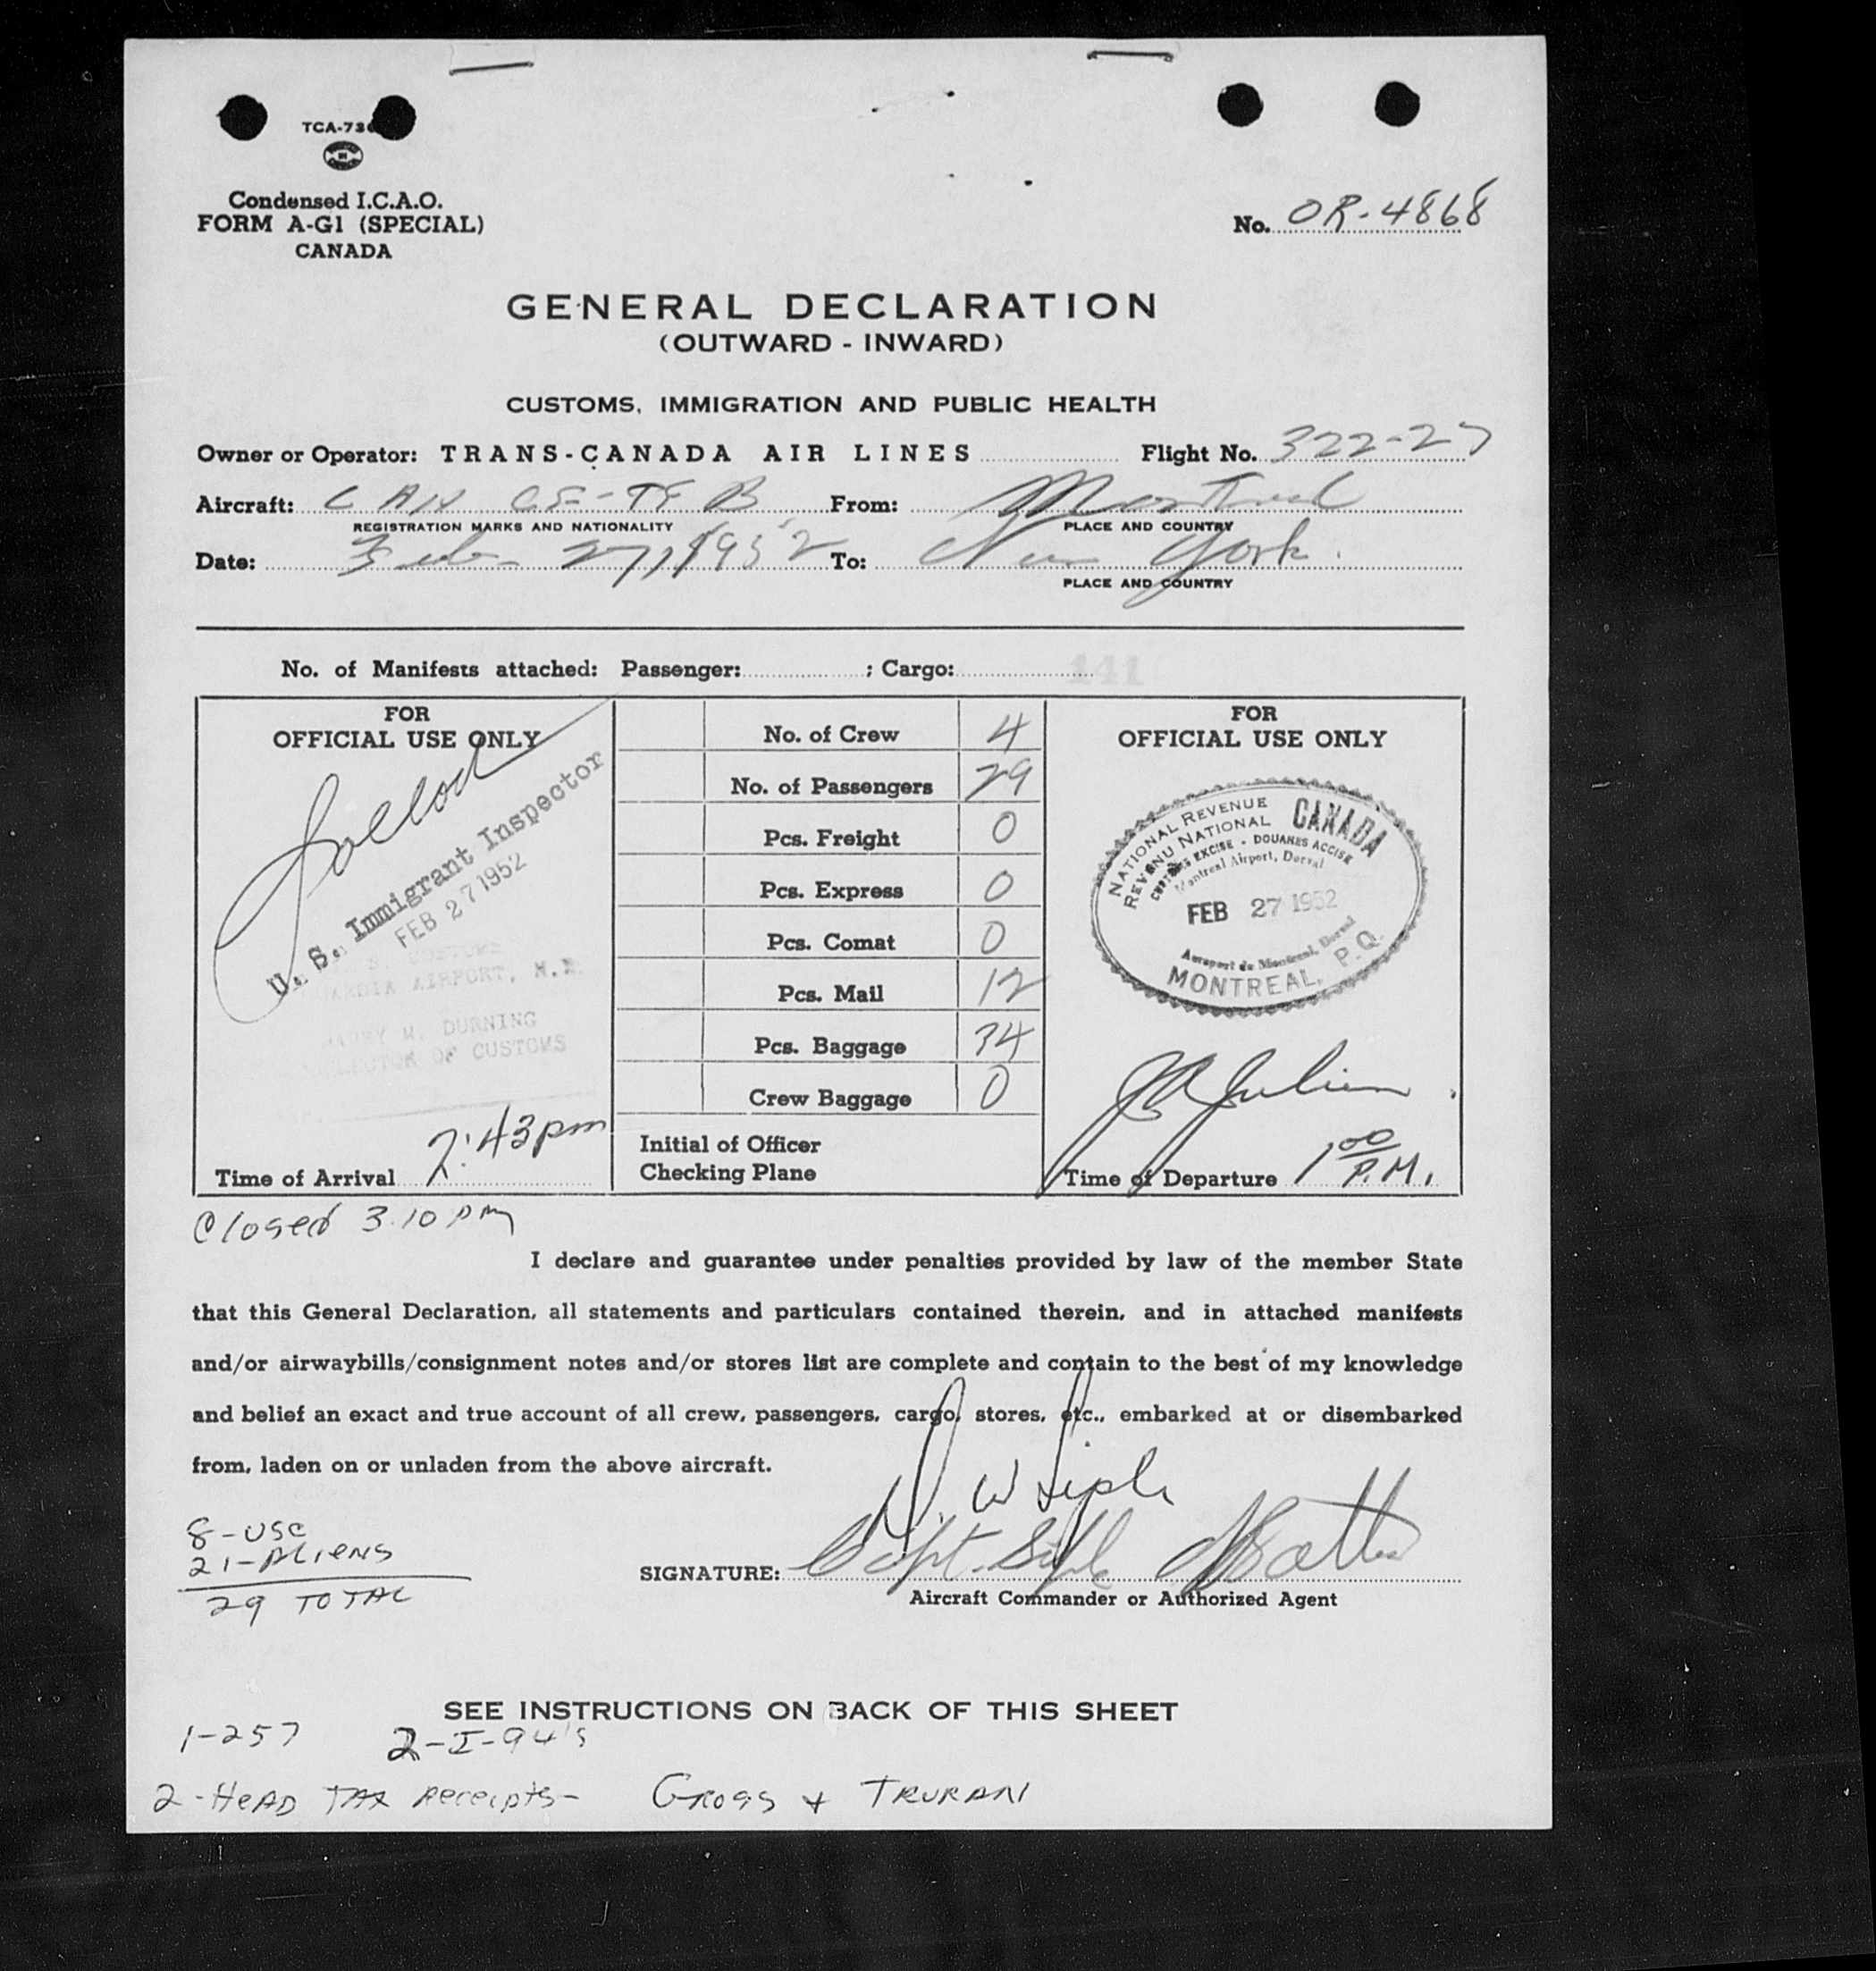 TCA-73
Condensed I.C.A.O.
FORM A-G1 (SPECIAL)
CANADA
No. OR-4868
GENERAL DECLARATION
(OUTWARD - INWARD)
CUSTOMS, IMMIGRATION AND PUBLIC HEALTH
Owner or Operator: TRANS-CANADA AIR LINES Flight No. 322-27
Aircraft: CAN CF-TFB From: Montreal
REGISTRATION MARKS AND NATIONALITY PLACE AND COUNTRY
Date: Feb 27, 1952 To: New York.
PLACE AND COUNTRY
No. of Manifests attached: Passenger: ; Cargo: 141
FOR
OFFICIAL USE ONLY
U. S. Immigrant Inspector
FEB 27 1952
AIRPORT, N.Y.
M. DURNING
OF CUSTOMS
Time of Arrival 2:43 pm
No. of Crew 4
No. of Passengers 29
Pcs. Freight 0
Pcs. Express 0
Pcs. Comat 0
Pcs. Mail 12
Pcs. Baggage 34
Crew Baggage 0
Initial of Officer
Checking Plane
FOR
OFFICIAL USE ONLY
NATIONAL REVENUE CANADA
REVENU NATIONAL
CUSTOMS EXCISE - DOUANES ACCISE
Montreal Airport, Dorval
FEB 27 1952
Aeroport de Montreal, Dorval
MONTREAL, P.Q.
Julien
Time of Departure 1 00 P.M.
Closed 3.10 pm
I declare and guarantee under penalties provided by law of the member State
that this General Declaration, all statements and particulars contained therein, and in attached manifests
and/or airwaybills/consignment notes and/or stores list are complete and contain to the best of my knowledge
and belief an exact and true account of all crew, passengers, cargo, stores, etc., embarked at or disembarked
from, laden on or unladen from the above aircraft.
8-USC
21-ALIENS
29 TOTAL
SIGNATURE: Capt.
Aircraft Commander or Authorized Agent
SEE INSTRUCTIONS ON BACK OF THIS SHEET
1-257 2-I-94's
2-HEAD TAX Receipts- GROSS + TRURAN